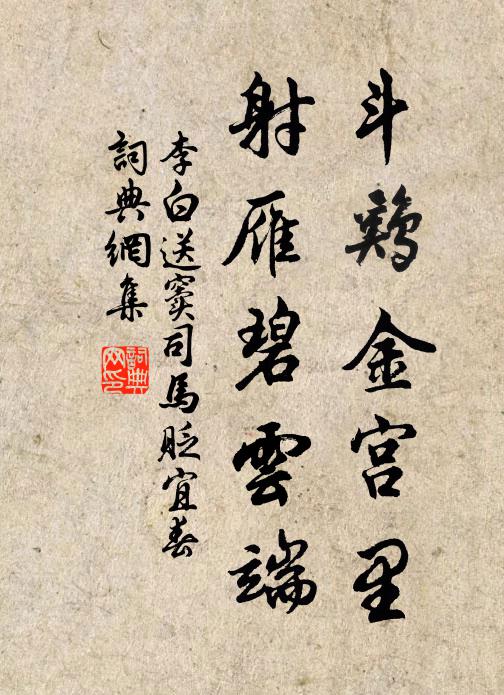 斗鷄金宫里
射雁碧雲端
李白送窦司馬貶宜春
詞典網集
詞典網印